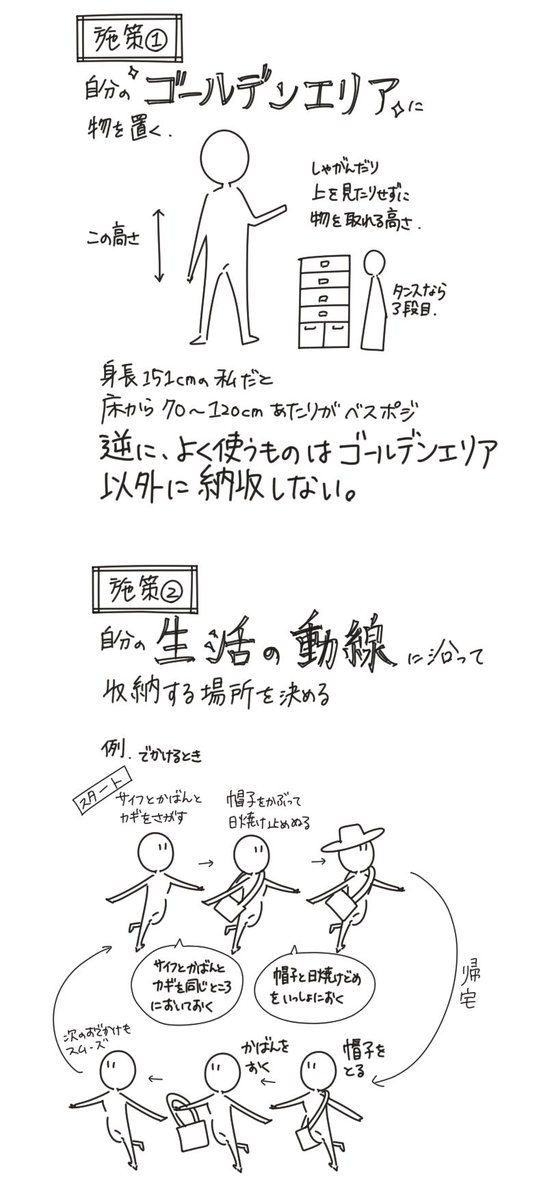 施策①
自分の ゴールデンエリア に
物を置く.
しゃがんだり
上を見たりせずに
物を取れる高さ.
この高さ
タンスなら
3段目.
身長151cmの私だと
床から70〜120cmあたりがベスポジ
逆に、よく使うものはゴールデンエリア
以外に納収しない。
施策②
自分の 生活の動線 に沿って
収納する場所を決める
例. でかけるとき
スタート
サイフとかばんと
カギをさがす
帽子をかぶって
日焼け止めぬる
サイフとかばんと
カギを同じところ
においておく
帽子と日焼けどめ
をいっしょにおく
帰宅
帽子を
とる
かばんを
おく
次のおでかけも
スムーズ